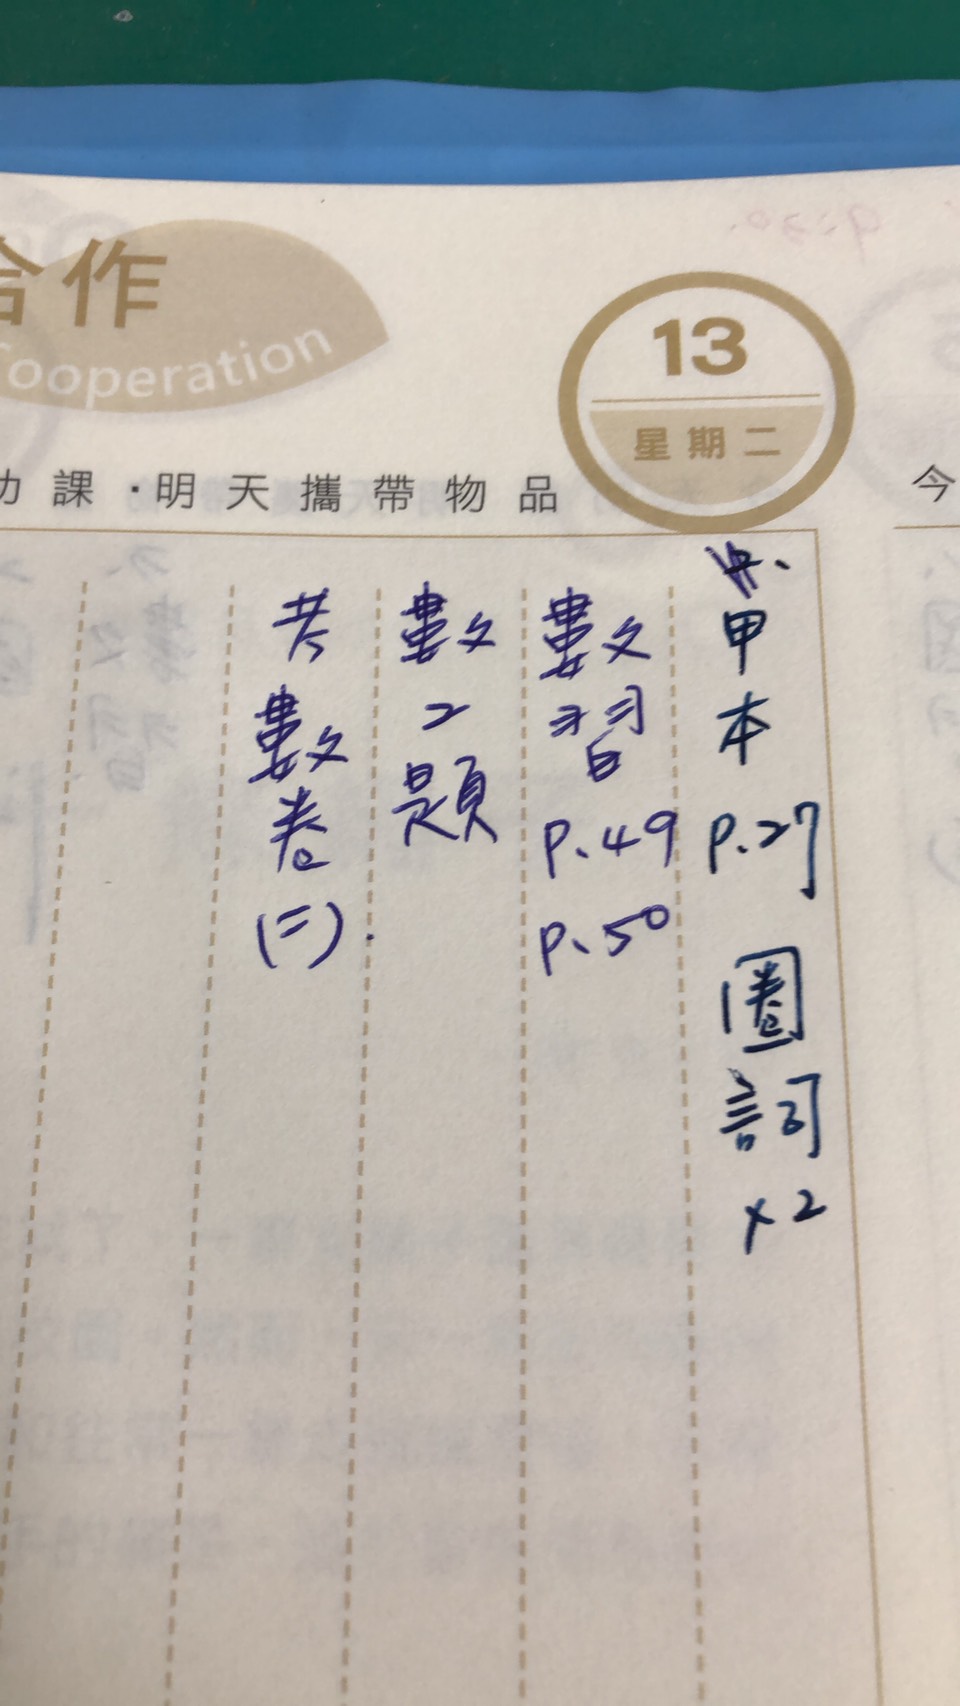 合作
Cooperation
13
星期二
功課·明天攜帶物品
今
甲本 p.27 圈詞 x2
數習 p.49 p.50
數2題
考數卷(二).